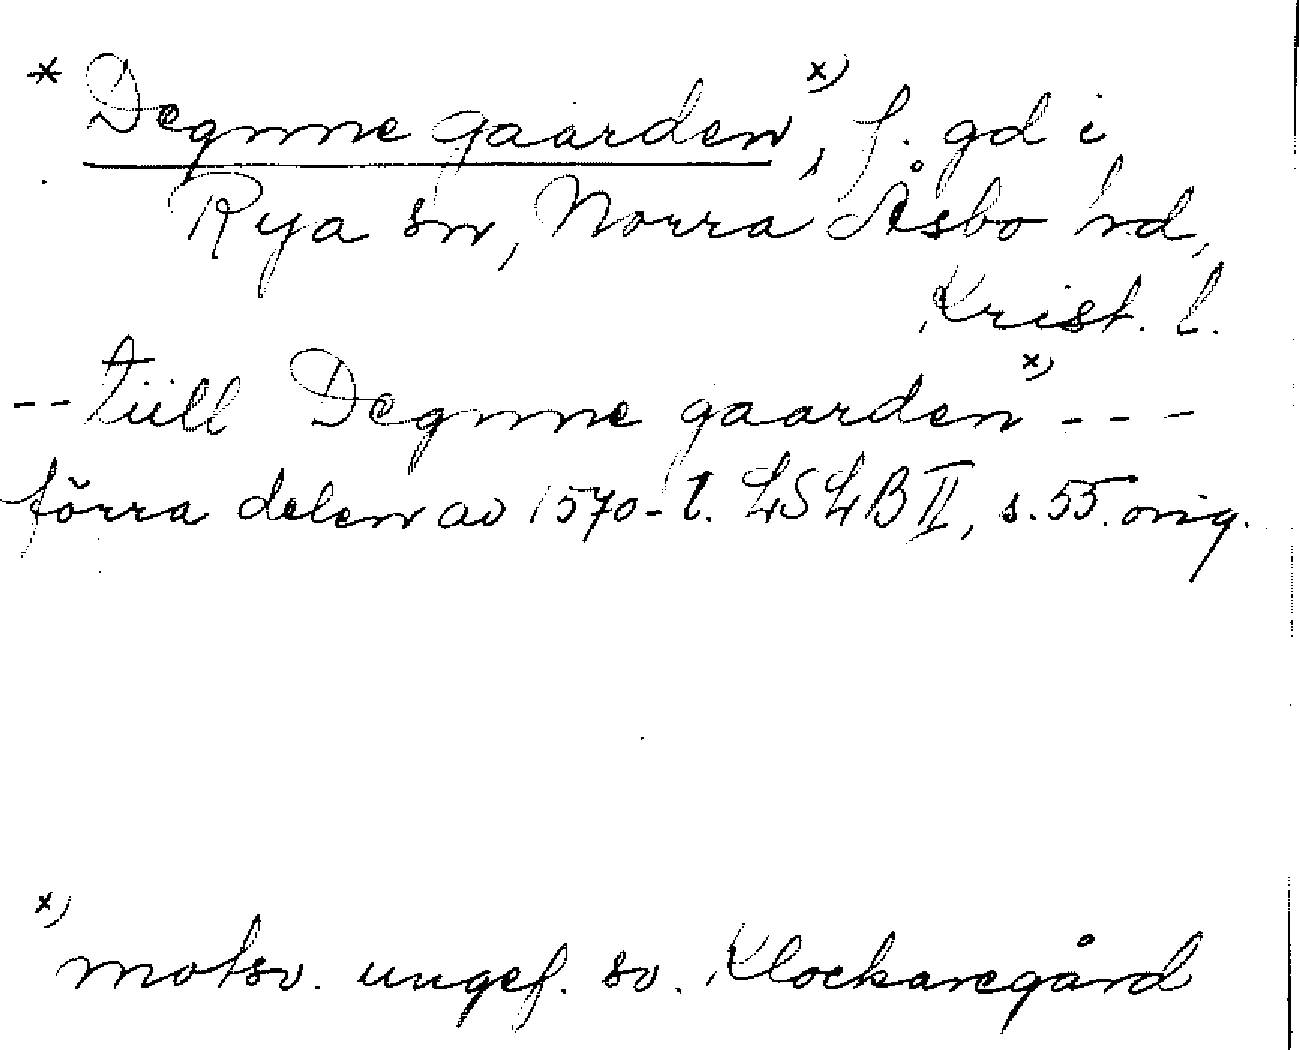 * Degnne gaarden x), f. gd i
Rya sn, Norra Åsbo hd,
Krist. l.
-- tiill Degnne gaarden x) ---
förra delen av 1570-t. LSLB II, s. 55. orig.
x) motsv. ungef. sv. Klockaregård